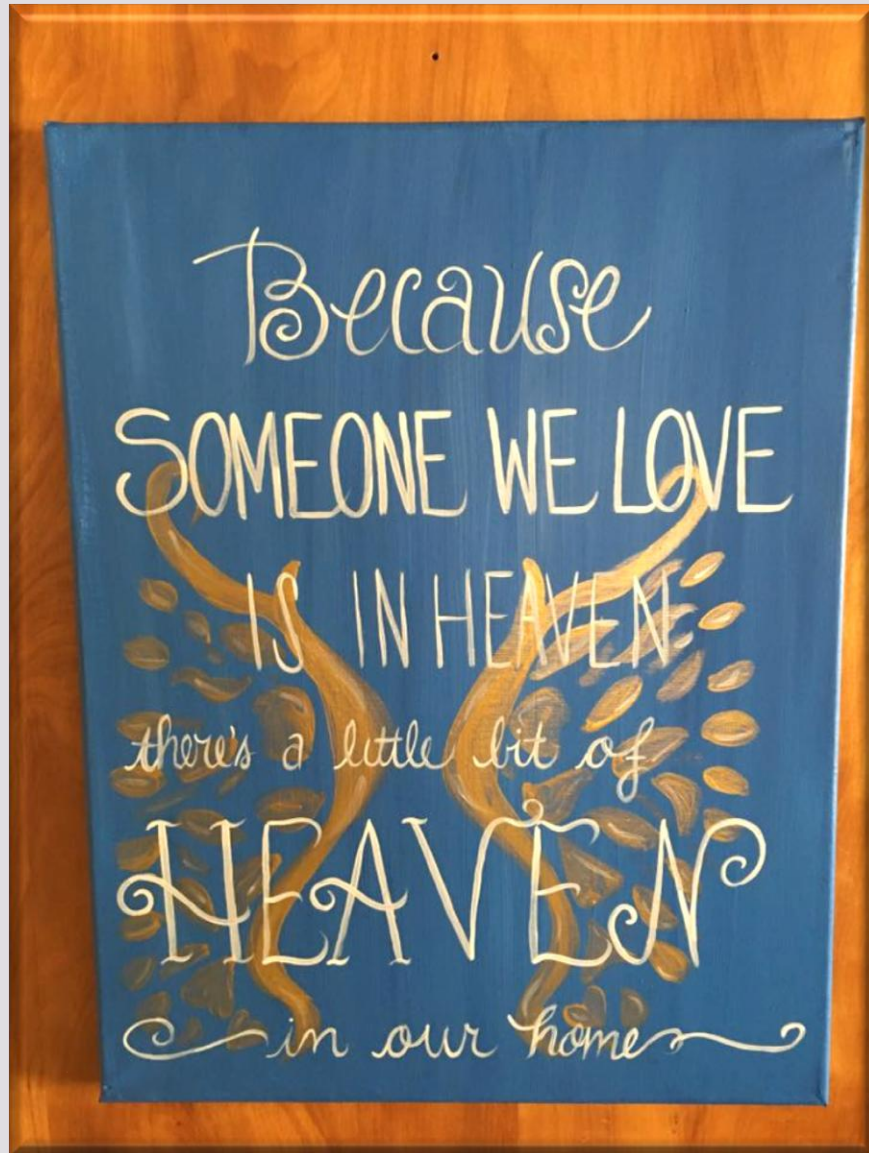 Because
SOMEONE WE LOVE
IS IN HEAVEN
there's a little bit of
HEAVEN
in our home